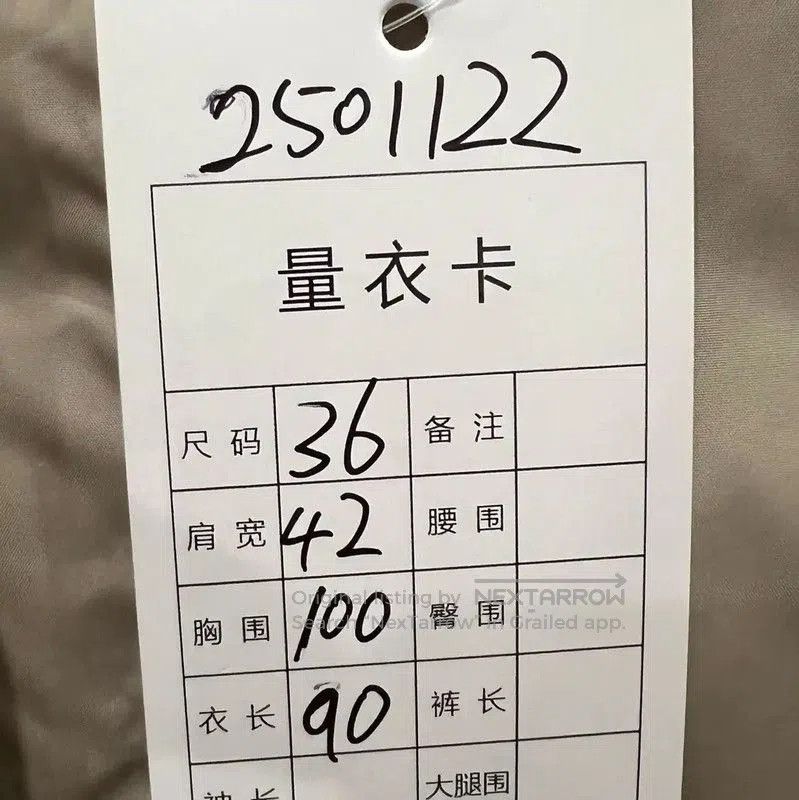 2501122
量衣卡
尺码 36 备注
肩宽 42 腰围
Original listing by NEXTARROW
Search "NexTarrow" in Grailed app.
胸围 100 臀围
衣长 90 裤长
袖长 大腿围